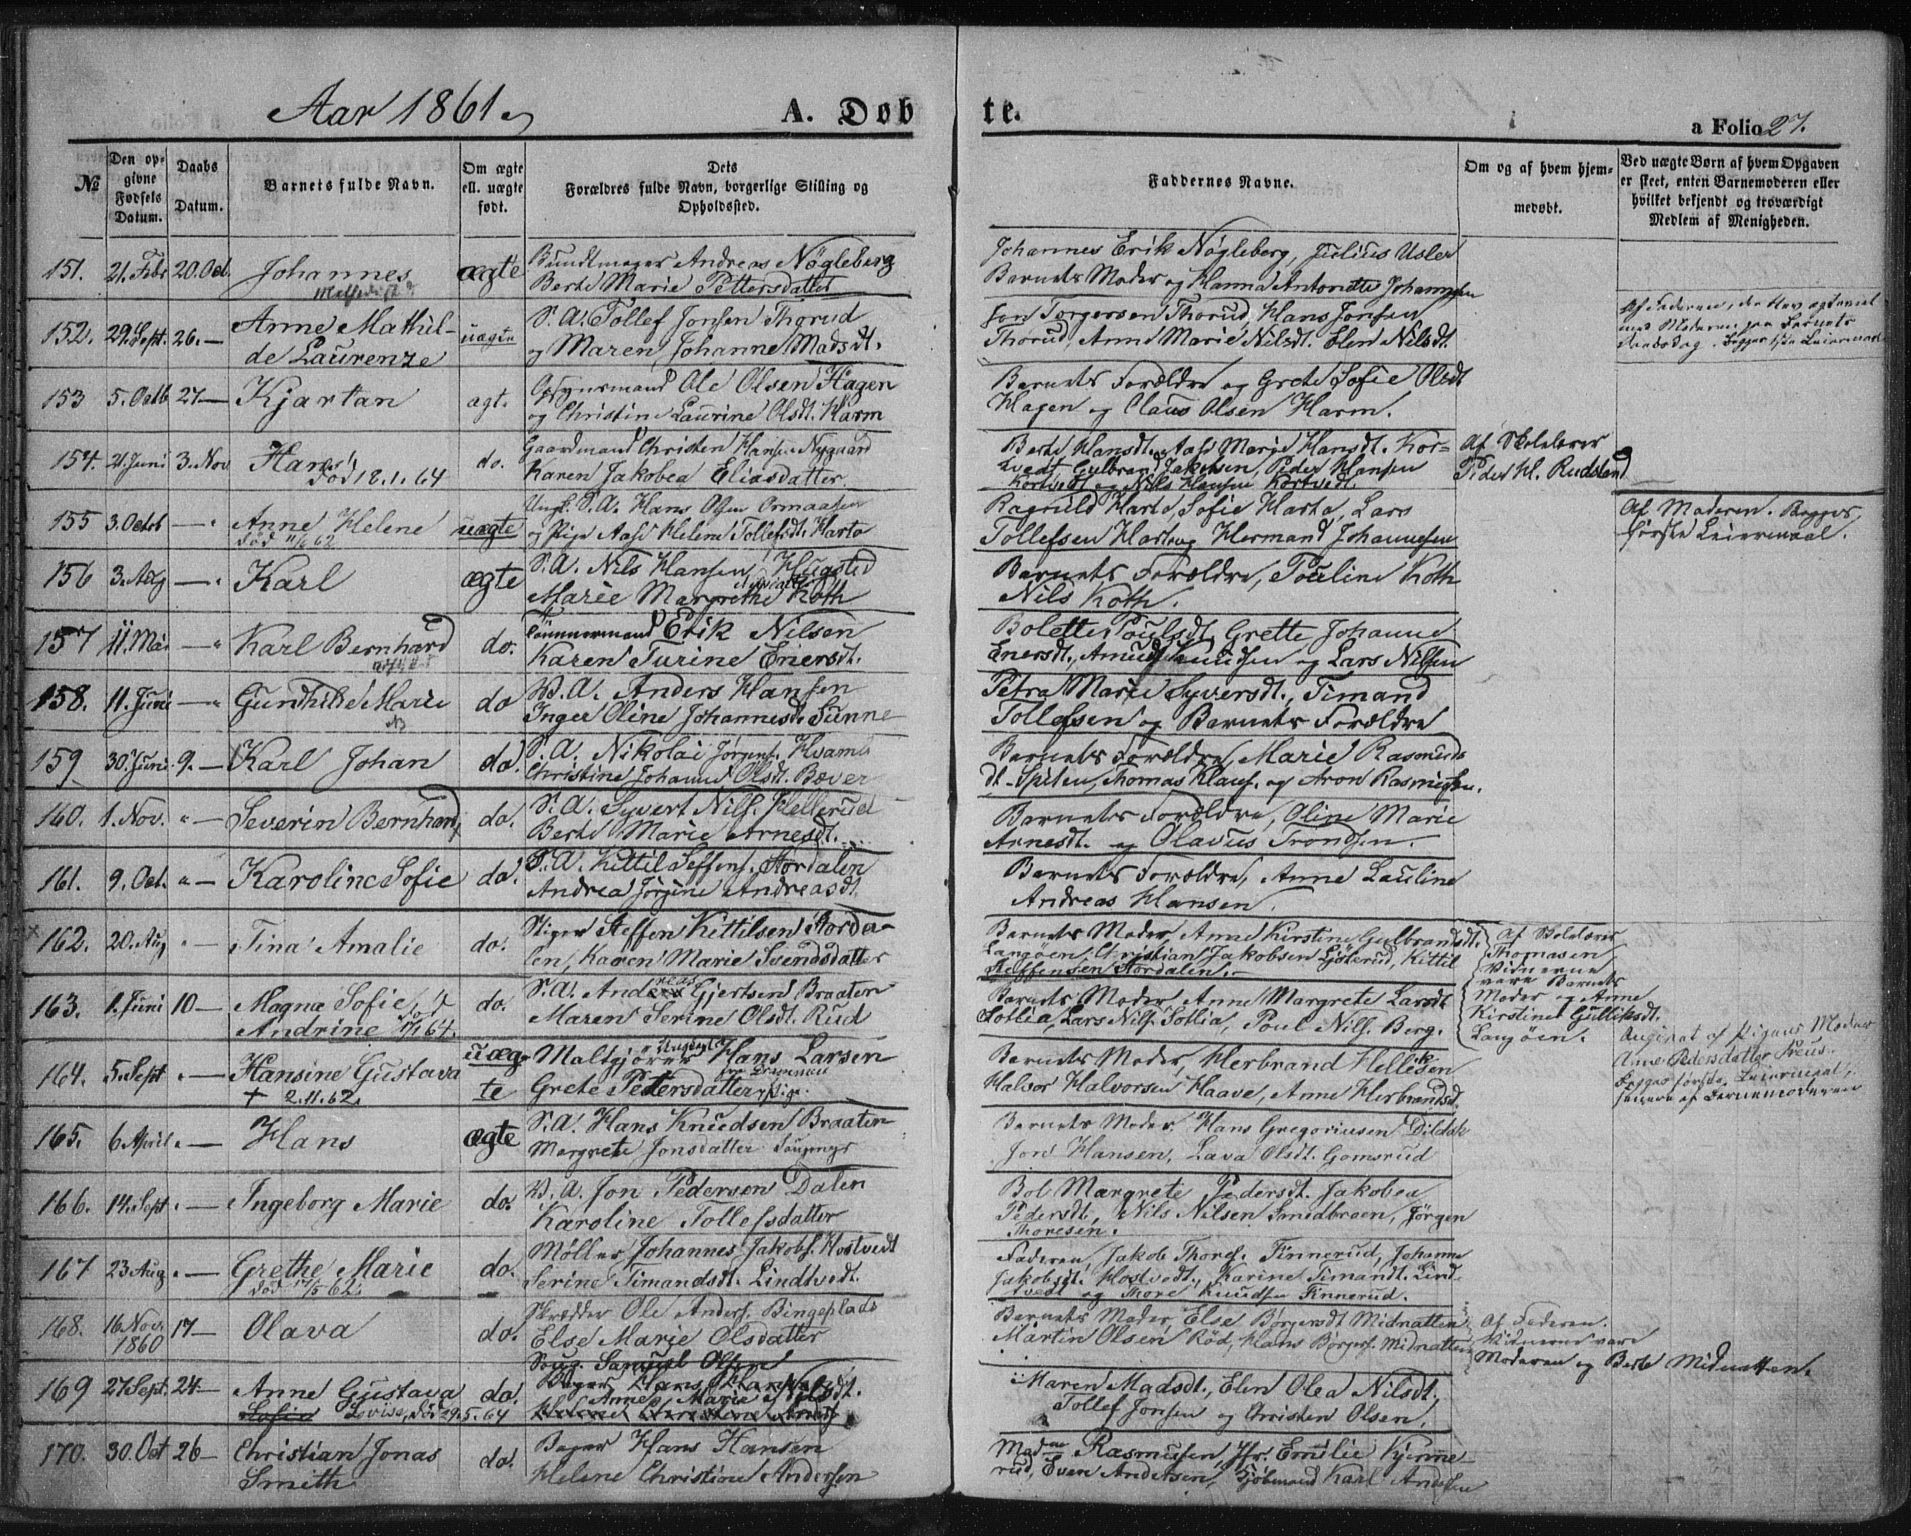 Aar 1861.
A. Døb
te.
a Folio 27.
№
Den op-
givne
Fødsels
Datum.
Daabs
Datum.
Barnets fulde Navn.
Om ægte
ell. uægte
født.
Dets
Forældres fulde Navn, borgerlige Stilling og
Opholdssted.
Faddernes Navne.
Om og af hvem hjem-
medøbt.
Ved uægte Børn af hvem Opgaven
er skeet, enten Barnemoderen eller
hvilket bekjendt og troværdigt
Medlem af Menigheden.
151. 21. Febr 20. Oct. Johannes ægte
Bundtmager Andreas Nøgleberg
Berte Marie Pettersdatter
Johannes Erik Nøgleberg, Julius Usler
Barnets Moder og Hanna Antonette Johannsen
152. 29. Sept. 26. — Anne Mathil-
de Laurenze
uægte
S. A. Tollef Jonsen Thorud
og Maren Johanne Madsdt.
Jon Torgersen Thorud, Hans Jonsen
Thorud, Anne Marie Nilsdt. Elen Nilsdt.
Af Faderen,
med Moderen paa Barnets
Daabsdag. Begges 1ste Leiermaal
153 5. Octb 27 — Kjartan ægt.
Opsynsmand Ole Olsen Hagen
og Christine Laurine Olsdt. Harm
Barnets Forældre og Grete Sofie Olsdt
Hagen og Claus Olsen Harm.
154. 21. Juni 3. Nov Hans
Død 18.1.64
do.
Gaardmand Christen Hansen Nygaard
Karen Jakobea Eliasdatter.
Berte Hansdt., Aase Marie Hansdt. Kor-
tvedt, Gulbrand Jakobsen, Peder Hansen
Kortvedt og Nils Hansen Kortvedt.
Af Skolelærer
Peder H. Rudsland
155 3. Octob — " Anne Helene
død 11/6 62
uægte
Ungk. S. A. Hans Olsen Ormaasen
og Pige Aase Helene Tollefsdt. Harto
Ragnild Harto, Sofie Harto, Lars
Tollefsen Harto og Hermand Johannesen
Af Moderen. Begges
første Leiermaal.
156 3. Aug — " Karl ægte
S. A. Nils Hansen Hugsted
Marie Margrethe Koth
Barnets Forældre, Pouline Koth
Nils Koth.
157 11. Mai — " Karl Bernhard do.
Tømmermand Erik Nilsen
Karen Turine Enersdt.
Bolette Poulsdt. Grette Johanne
Enersdt., Amund Knudsen og Lars Nilsen
158. 11. Juni — " Gunhilde Marie do
B. A. Anders Hansen
Inger Oline Johannesdt. Sunne
Petra Marie Syversdt., Timand
Tollefsen og Barnets Forældre
159 30. Juni 9. — Karl Johan do.
S. A. Nikolai Jørgens. Hvams
Christine Johanne Olsdt. Bæver
Barnets Forældre, Marie Rasmuds
dt. Spiten, Thomas Klaus. og Aron Rasmussen.
160. 1. Nov. " — Severin Bernhard do.
S. A. Syvert Nils. Hellerud
Berte Marie Arnesdt.
Barnets Forældre, Oline Marie
Arnesdt. og Olavus Trondsen.
161. 9. Oct. " — Karoline Sofie do.
S. A. Kittil Seffens. Stordalen
Andrea Jørgine Andreasdt.
Barnets Forældre, Anne Lauline
Andreas Hansen.
162. 20. Aug " — Tina Amalie do.
Stiger Steffen Kittilsen Storda-
len, Karen Marie Svendsdatter
Barnets Moder, Anne Kirstine Gulbrandsdt.
Langøen, Christian Jakobsen Gjøterud, Kittil
Steffensen Stordalen.
Af Skolelærer
Thomasen
Vidnerne
vare Barnets
Moder og Anne
Kirstine Gulliksdt.
Langøen.
163. 1. Juni 10 — Magna Sofie
Andrine
do.
S. A. Andreas Gjertsen Braaten
Maren Serine Olsdt. Rud
Barnets Moder, Anne Margrete Larsdt
Sotlia, Lars Nils. Sotlia, Poul Nils. Berg.
164. 5. Sept " — Hansine Gustava
+ 2.11.62.
uæg-
te
Maltgjører Hans Larsen
fra Drammen
Grete Pedersdatter Pige.
Barnets Moder, Herbrand Helleksen
Halvor Halvorsen Haave, Anne Herbrandsdt.
Angivet af Pigens Moder
Anne Pedersdatter
Begges første Leiermaal,
senere af Barnemoderen
165. 6 April " — Hans ægte
S. A. Hans Knudsen Braaten
Margrete Jonsdatter Saugmyr
Barnets Moder, Hans Gregoriusen Dildal
Jord Hansen, Lava Olsdt. Gomsrud
166. 14. Sept " — Ingeborg Marie do.
B. A. Jon Pedersen Dalen
Karoline Tollefsdatter
Bol. Margrete Pedersdt. Jakobea
Pedersdt., Nils Nilsen Smedbroen, Jørgen
Thoresen.
167 23 Aug " — Grethe Marie
død 17/5 62.
do.
Møller Johannes Jakobs. Hostvedt
Serine Timandsdt. Lindtvedt.
Faderen, Jakob Thores. Finnerud, Johanne
Jakobsdt. Hostvedt, Karine Timandt. Lind-
tvedt og Thore Knudsen Finnerud.
168. 16 Nov. 17 — Olava do.
1860
Skrædder Ole Anders. Bingeplads
Else Marie Olsdatter
Barnets Moder, Else Børgersdt Midnatten
Martin Olsen Rød, Hans Børgers. Midnatten
Af Faderen.
Vidnerne vare
Moderen og Berte Midnatten.
169 27 Sept. 24 — Anne Gustava
Sofia Lovise, død 29.5.64
do.
Saug. Samuel Olsen
Bager Hans Hansen
Anne Marie Nilsdt.
Helene Christine Anders
Maren Madsdt., Elen Olea Nilsdt.
Tollef Jonsen og Christen Olsen.
170. 30 Oct 26 — Christian Jonas
Smith
do.
Bager Hans Hansen
Helene Christine Andersen
Madme Rasmussen, Jfr. Emilie Kjenne-
rud, Even Andersen, Kjøbmand Karl Andersen